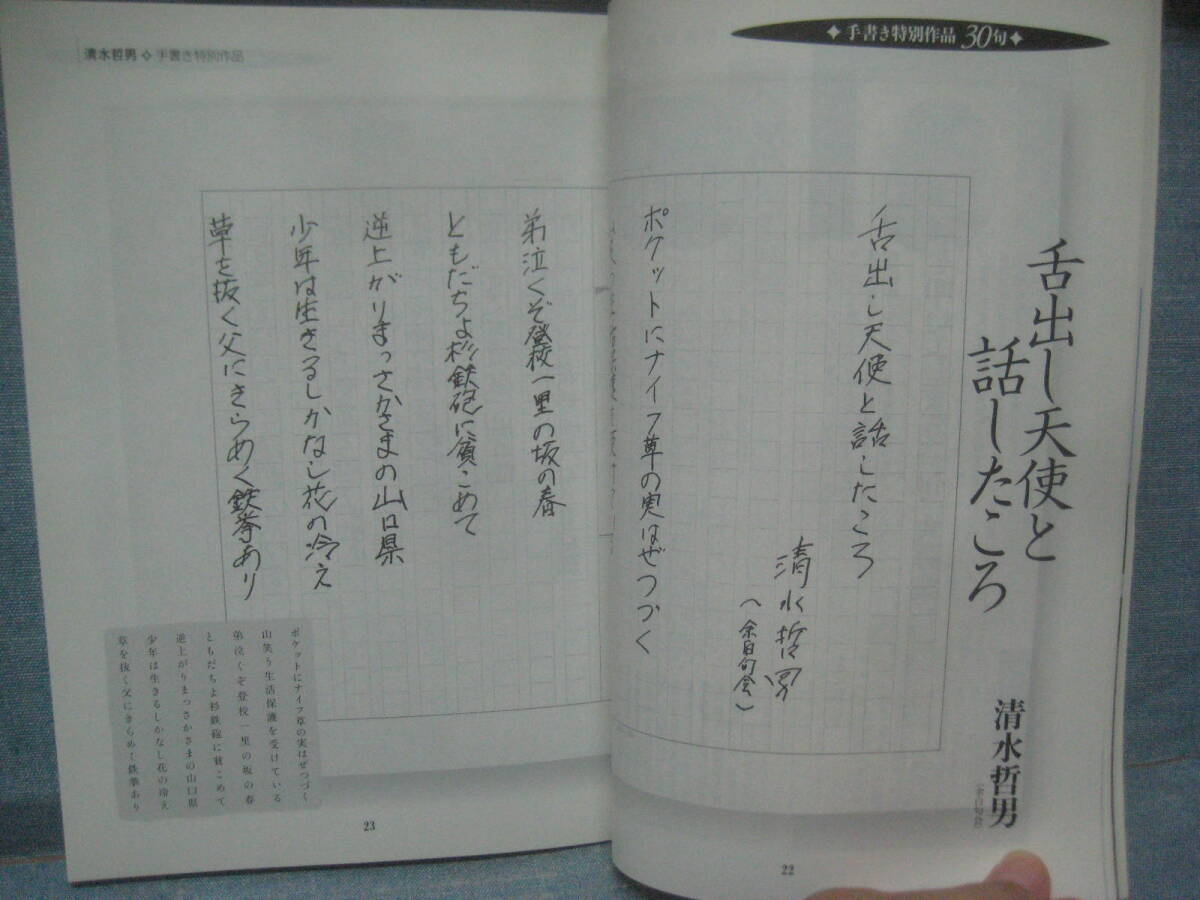 ✦手書き特別作品30句✦
舌出し天使と
話したころ
清水哲男
(余白句会)
舌出し天使と話したころ
清水哲男
(余白句会)
ポケットにナイフ草の実はぜつづく
22
清水哲男✧手書き特別作品
弟泣くぞ登校一里の坂の春
ともだちよ杉鉄砲に貧こめて
逆上がりまっさかさまの山口県
少年は生きるしかなし花の冷え
草を抜く父にきらめく鉄拳あり
ポケットにナイフ草の実はぜつづく
山笑う生活保護を受けている
弟泣くぞ登校一里の坂の春
ともだちよ杉鉄砲に貧こめて
逆上がりまっさかさまの山口県
少年は生きるしかなし花の冷え
草を抜く父にきらめく鉄拳あり
23